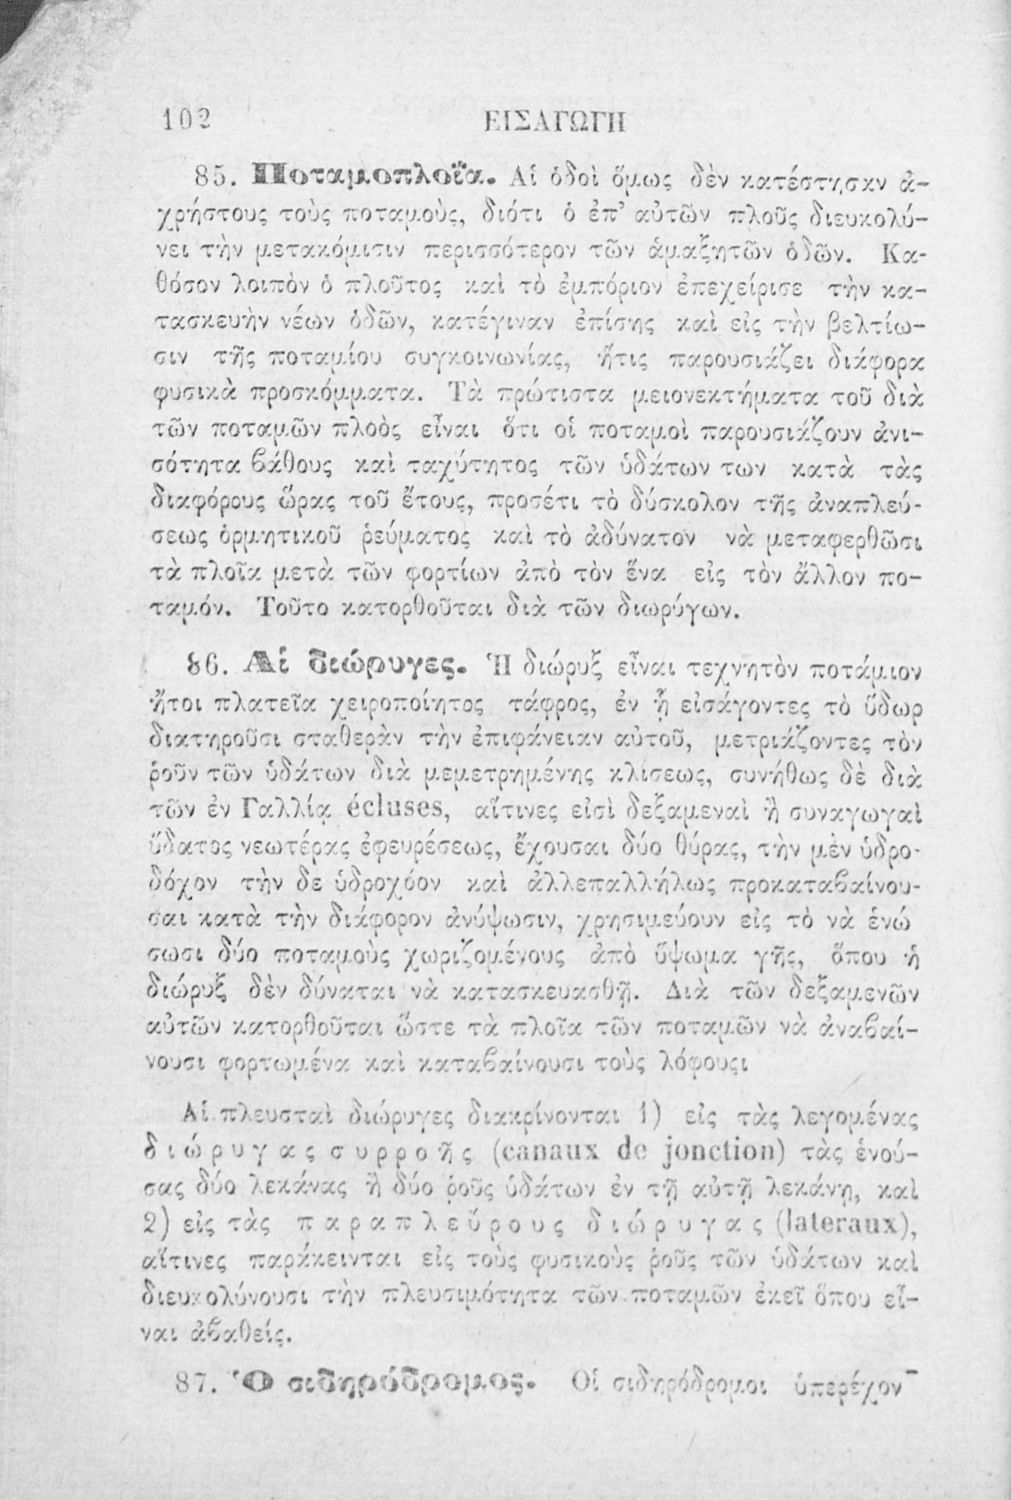 102 ΕΙΣΑΓΩΓΗ
85. Ποταμοπλοΐα. Αἱ ὁδοὶ ὅμως δὲν κατέστησαν ἀ-
χρήστους τοὺς ποταμοὺς, διότι ὁ ἐπ’ αὐτῶν πλοῦς διευκολύ-
νει τὴν μετακόμισιν περισσότερον τῶν ἁμαξητῶν ὁδῶν. Κα-
θόσον λοιπὸν ὁ πλοῦτος καὶ τὸ ἐμπόριον ἐπεχείρισε τὴν κα-
τασκευὴν νέων ὁδῶν, κατέγιναν ἐπίσης καὶ εἰς τὴν βελτίω-
σιν τῆς ποταμίου συγκοινωνίας, ἥτις παρουσιάζει διάφορα
φυσικὰ προσκόμματα. Τὰ πρώτιστα μειονεκτήματα τοῦ διὰ
τῶν ποταμῶν πλοὸς εἶναι ὅτι οἱ ποταμοὶ παρουσιάζουν ἀνι-
σότητα βάθους καὶ ταχύτητος τῶν ὑδάτων των κατὰ τὰς
διαφόρους ὥρας τοῦ ἔτους, προσέτι τὸ δύσκολον τῆς ἀναπλεύ-
σεως ὁρμητικοῦ ῥεύματος καὶ τὸ ἀδύνατον νὰ μεταφερθῶσι
τὰ πλοῖα μετὰ τῶν φορτίων ἀπὸ τὸν ἕνα εἰς τὸν ἄλλον πο-
ταμόν. Τοῦτο κατορθοῦται διὰ τῶν διωρύγων.
86. Αἱ διώρυγες. Ἡ διώρυξ εἶναι τεχνητὸν ποτάμιον
ἤτοι πλατεῖα χειροποίητος τάφρος, ἐν ᾗ εἰσάγοντες τὸ ὕδωρ
διατηροῦσι σταθερὰν τὴν ἐπιφάνειαν αὐτοῦ, μετριάζοντες τὸν
ῥοῦν τῶν ὑδάτων διὰ μεμετρημένης κλίσεως, συνήθως δὲ διὰ
τῶν ἐν Γαλλίᾳ écluses, αἵτινες εἰσὶ δεξαμεναὶ ἢ συναγωγαὶ
ὕδατος νεωτέρας ἐφευρέσεως, ἔχουσαι δύο θύρας, τὴν μὲν ὑδρο-
δόχον τὴν δε ὑδροχόον καὶ ἀλλεπαλλήλως προκαταβαίνου-
σαι κατὰ τὴν διάφορον ἀνύψωσιν, χρησιμεύουν εἰς τὸ νὰ ἑνώ
σωσι δύο ποταμοὺς χωριζομένους ἀπὸ ὕψωμα γῆς, ὅπου ἡ
διώρυξ δὲν δύναται νὰ κατασκευασθῇ. Διὰ τῶν δεξαμενῶν
αὐτῶν κατορθοῦται ὥστε τὰ πλοῖα τῶν ποταμῶν νὰ ἀναβαί-
νουσι φορτωμένα καὶ καταβαίνουσι τοὺς λόφουςι
Αἱ πλευσταὶ διώρυγες διακρίνονται 1) εἰς τὰς λεγομένας
διώρυγας συρροῆς (canaux de jonction) τὰς ἑνού-
σας δύο λεκάνας ἢ δύο ῥοῦς ὑδάτων ἐν τῇ αὐτῇ λεκάνῃ, καὶ
2) εἰς τὰς παραπλεύρους διώρυγας (lateraux),
αἵτινες παράκεινται εἰς τοὺς φυσικοὺς ῥοῦς τῶν ὑδάτων καὶ
διευκολύνουσι τὴν πλευσιμότητα τῶν ποταμῶν ἐκεῖ ὅπου εἶ-
ναι ἀβαθείς.
87. Ὁ σιδηρόδρομος. Οἱ σιδηρόδρομοι ὑπερέχον-